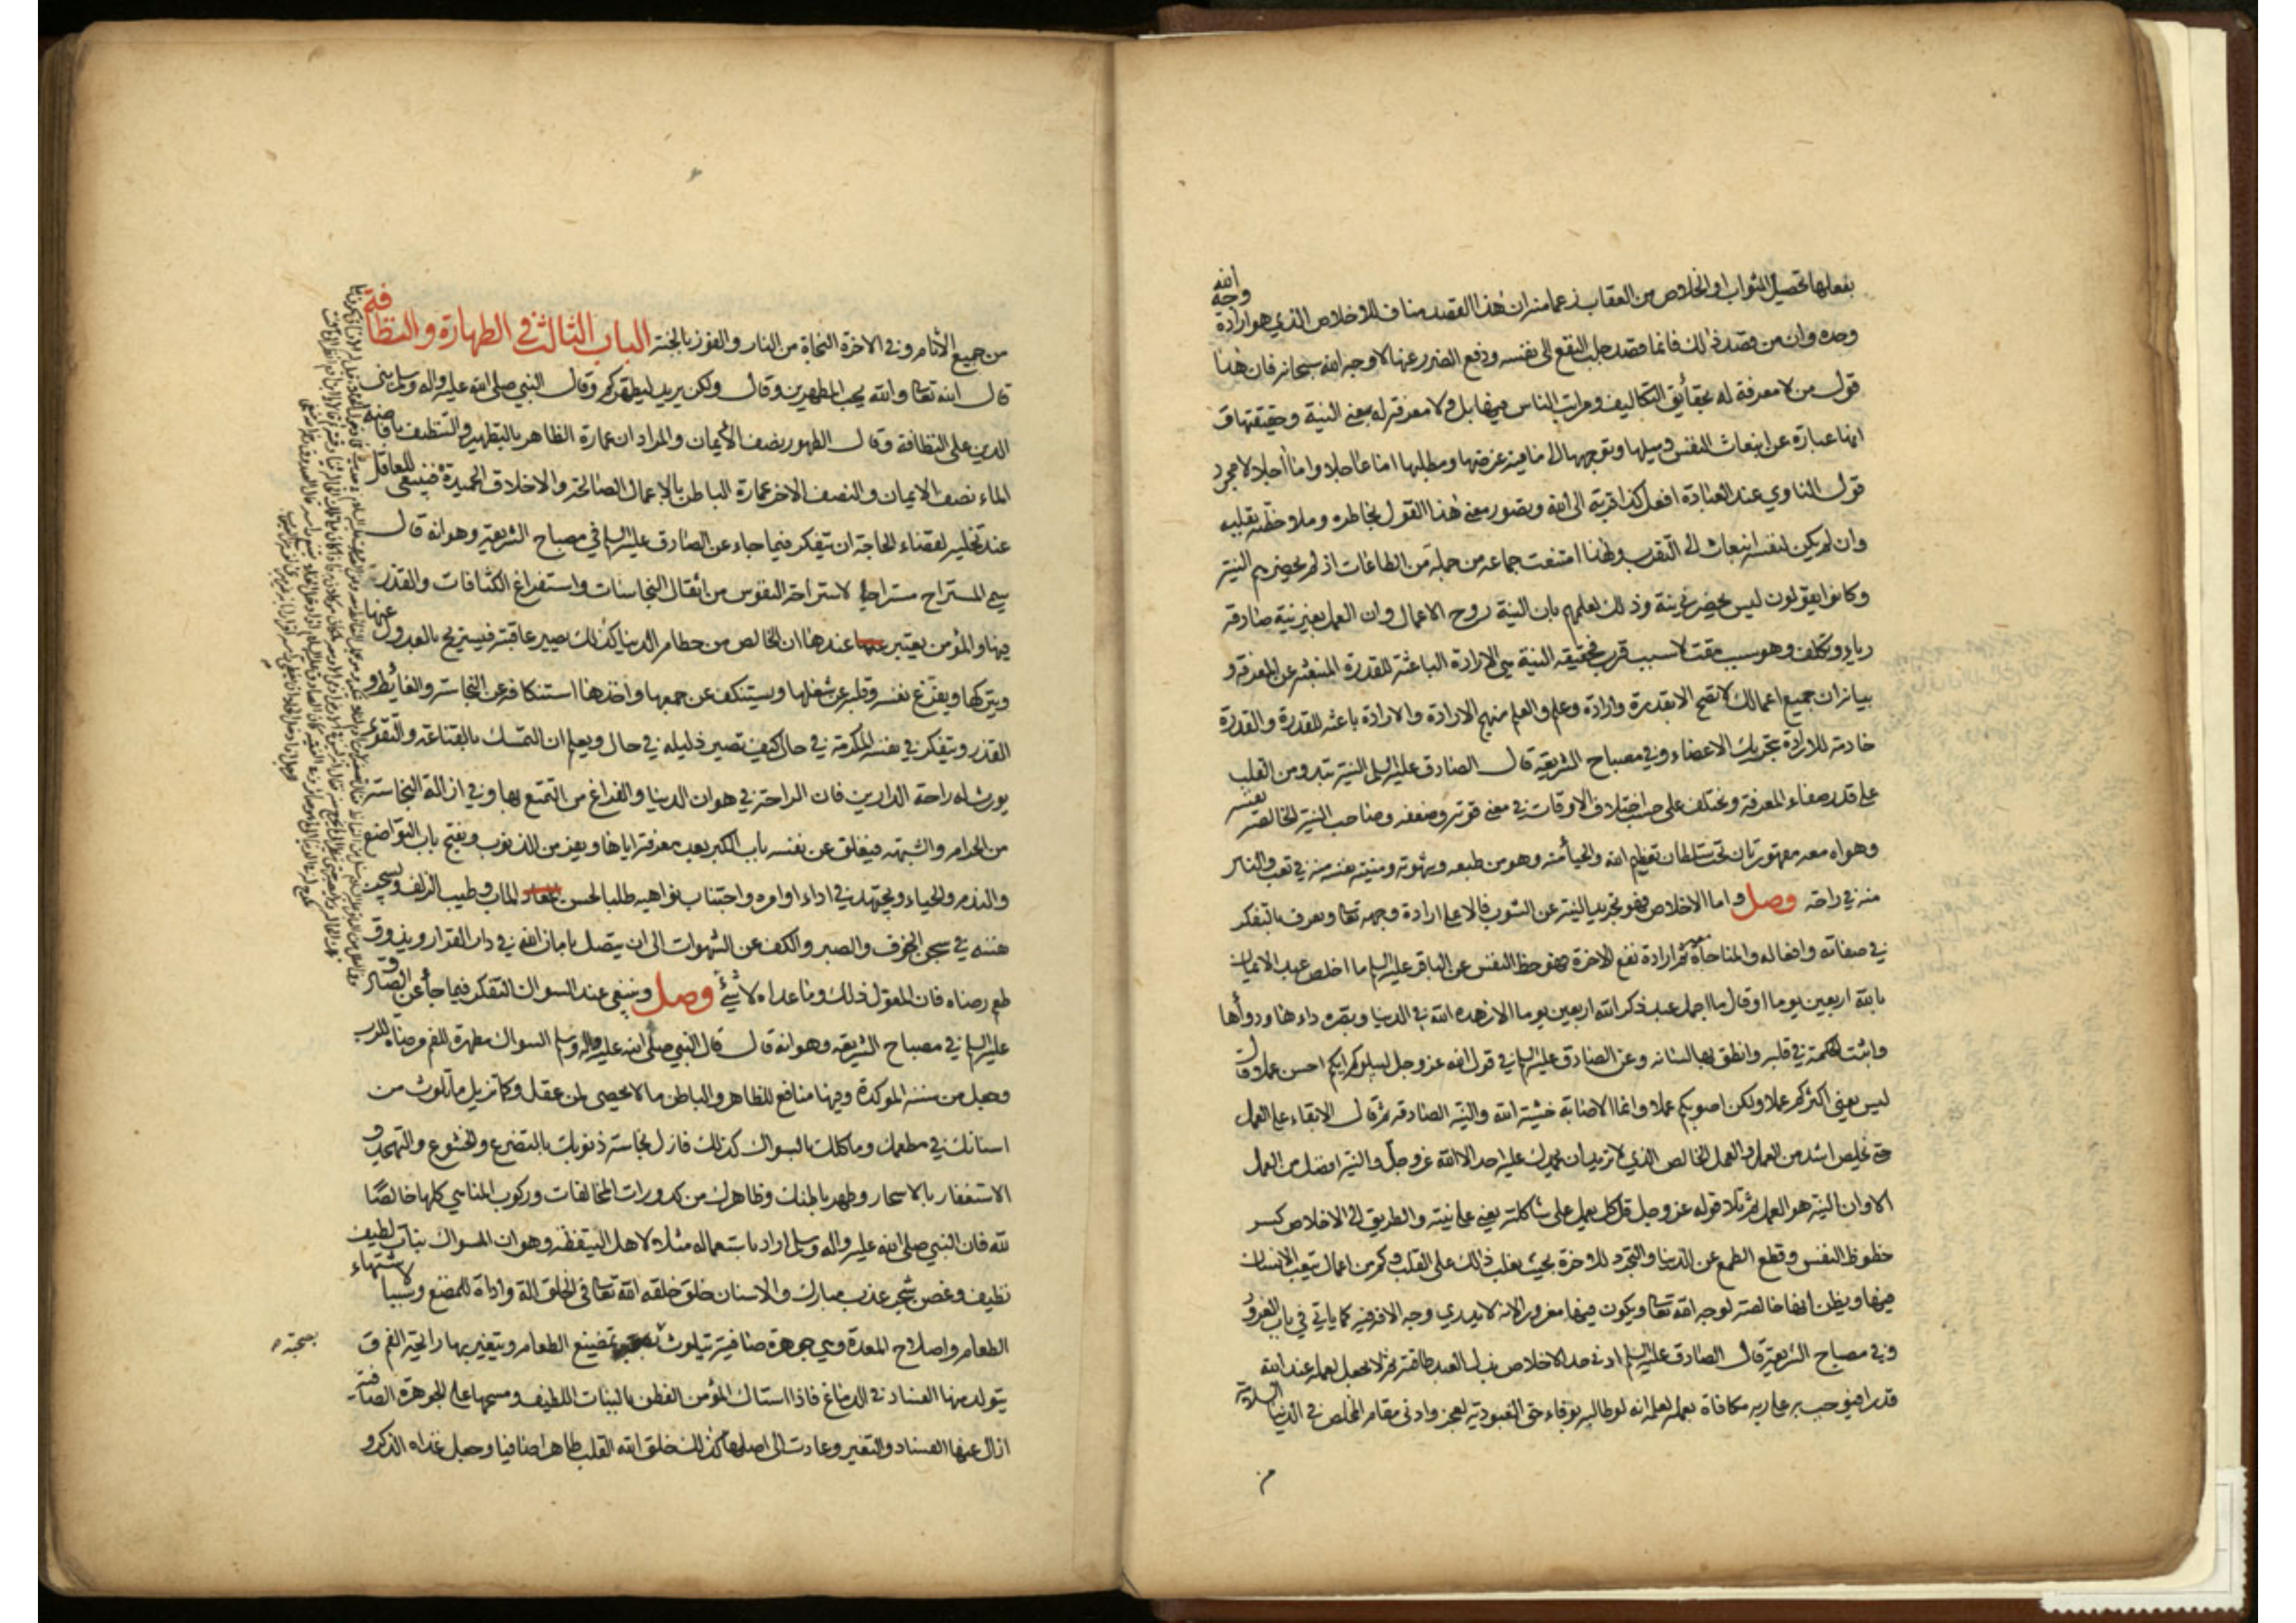 بفعلها تحصيل الثواب او الخلاص من العقاب زعما منه ان هذا القصد مناف للاخلاص الذي هو ارادة وجه الله
وحده وان من قصد ذلك فانما قصد جلب النفع الى نفسه ودفع الضرر عنها لا وجه الله سبحانه فان هذا
قول من لا معرفة له بحقايق التكاليف ومراتب الناس فيها بل ولا معرفة له بمعنى النية وحقيقتها ف
انها عبارة عن انبعاث النفس وميلها وتوجهها الى ما فيه غرضها ومطلبها اما عاجلا واما اجلا لا مجرد
قول الناوي عند العبادة افعل كذا قربة الى الله وتصور معنى هذا القول بخاطره وملاحظته بقلبه
وان لم يكن لنفسه انبعاث الى التقرب ولهذا امتنعت جماعة من جملة من الطاعات اذ لم يحضرهم النية
وكانوا يقولون ليس يحضرني نية وذلك لعلمهم بان النية روح الاعمال وان العمل بغير نية صادقة
رياء وتكلف وهو سبب مقت لا سبب قرب فحقيقة النية هي الارادة الباعثة للقدرة المنبعثة عن المعرفة و
بيانه ان جميع اعمالك لا تصح الا بقدرة وارادة وعلم والعلم منهج الارادة والارادة باعثة للقدرة والقدرة
خادمة للارادة بتحريك الاعضاء وفي مصباح الشريعة قال الصادق عليه السلم النية تبدو من القلب
على قدر صفاء المعرفة وتختلف على حسب اختلاف الاوقات في معنى قوته وضعفه وصاحب النية الخالصة نفسه
وهواه معه مقهورتان تحت سلطان تعظيم الله والحياء منه وهو من طبعه وشهوته ومنيته نفسه منه في تعب والناس
منه في راحة وصل واما الاخلاص فهو تجريد النية عن الشوب فالاعلى ارادة وجهه تعا ويعرف بالتفكر
في صفاته وافعاله والمناجاة ثم ارادة نفع الاخرة فهو حظ النفس عن الباقر عليه السلم ما اخلص عبد الايمان
بالله اربعين يوما او قال ما اجمل عبد ذكر الله اربعين يوما الا زهده الله في الدنيا وبصره داءها ودواءها
واثبت الحكمة في قلبه وانطق بها لسانه وعن الصادق عليه السلم في قول الله عز وجل ليبلوكم ايكم احسن عملا وقال
ليس يعني اكثركم عملا ولكن اصوبكم عملا وانما الاصابة خشية الله والنية الصادقة ثم قال الابقاء على العمل
حتى يخلص اشد من العمل والعمل الخالص الذي لا تريد ان يحمدك عليه احد الا الله عز وجل والنية افضل من العمل
الا وان النية هو العمل ثم تلا قوله عز وجل قل كل يعمل على شاكلته يعني على نيته والطريق الى الاخلاص كسر
حظوظ النفس وقطع الطمع عن الدنيا والتجرد للاخرة بحيث يغلب ذلك على القلب وكم من اعمال يتعب الانسان
فيها ويظن انها خالصة لوجه الله تعا ويكون فيها مغرورا لانه لا يدري وجه الافة فيه كما ياتي في باب الغرور
وفي مصباح الشريعة قال الصادق عليه السلم ادنى حد الاخلاص بذل العبد طاقته ثم لا يجعل لعمله عند الله
قدرا فيوجب به على ربه مكافاة بعمله لعلمه انه لو طالبه بوفاء حق العبودية لعجز وادنى مقام المخلص في الدنيا السلامة
من
من جميع الاثام وفي الاخرة النجاة من النار والفوز بالجنة الباب الثالث في الطهارة والنظافة
قال الله تعا والله يحب المطهرين وقال ولكن يريد ليطهركم وقال النبي صلى الله عليه واله وسلم بني
الدين على النظافة وقال الطهور نصف الايمان والمراد ان عمارة الظاهر بالتطهير والتنظيف بافاضة
الماء نصف الايمان والنصف الاخر عمارة الباطن بالاعمال الصالحة والاخلاق الحميدة فينبغي للعاقل
عند تخليه لقضاء الحاجة ان يتفكر فيما جاء عن الصادق عليه السلم في مصباح الشريعة وهو انه قال
سمي المستراح مستراحا لاستراحة النفوس من اثقال النجاسات واستفراغ الكثافات والقذر
فيها والمؤمن يعتبر عندها ان الخالص من حطام الدنيا كذلك يصير عاقبته فيستريح بالعدول عنها
ويتركها ويفرغ نفسه وقلبه عن شغلها ويستنكف عن جمعها واخذها استنكافه عن النجاسة والغائط و
القذر ويتفكر في نفسه المكرمة في حال كيف تصير ذليله في حال ويعلم ان التمسك بالقناعة والتقوى
يورث له راحة الدارين فان الراحة في هوان الدنيا والفراغ من التمتع بها وفي ازالة النجاسة
من الحرام والشبهة فيغلق عن نفسه باب الكبر بعد معرفته اياها ويفر من الذنوب ويفتح باب التواضع
والندم والحياء ويجتهد في اداء اوامره واجتناب نواهيه طلبا لحسن الماب وطيب الزلف ويسجن
نفسه في سجن الخوف والصبر والكف عن الشهوات الى ان يتصل بامان الله في دار القرار ويذوق
طعم رضاه فان المعول ذلك وما عداه لا شيء وصل وينبغي عند السواك التفكر فيما جاء عن الصادق
عليه السلم في مصباح الشريعة وهو انه قال قال النبي صلى الله عليه واله وسلم السواك مطهرة للفم مرضاة للرب
وجعل من سننه الموكدة وفيها منافع للظاهر والباطن ما لا يحصى لمن عقل وكما تزيل ما تلوث من
اسنانك في مطعمك وماكلك بالسواك كذلك فازل نجاسة ذنوبك بالتضرع والخشوع والتهجد و
الاستغفار بالاسحار وطهر باطنك وظاهرك من كدورات المخالفات وركوب المناهي كلها خالصا
لله فان النبي صلى الله عليه واله وسلم اراد باستعماله مثلا لاهل اليقظة وهو ان المسواك نبات لطيف
نظيف وغصن شجر عذب مبارك والاسنان خلق خلقه الله تعا في الخلق الة واداة للمضغ وسببا لاشتهاء
الطعام واصلاح المعدة وهي جوهرة صافية تتلوث بصحبة تمضيغ الطعام ويتغير بها رائحة الفم و
يتولد منها الفساد في الدماغ فاذا استاك المؤمن الفطن بالنبات اللطيف ومسحها على الجوهرة الصافية
ازال عنها الفساد والتغير وعادت الى اصلها كذلك خلق الله القلب طاهرا صافيا وجعل غذاه الذكر و
بصحبة